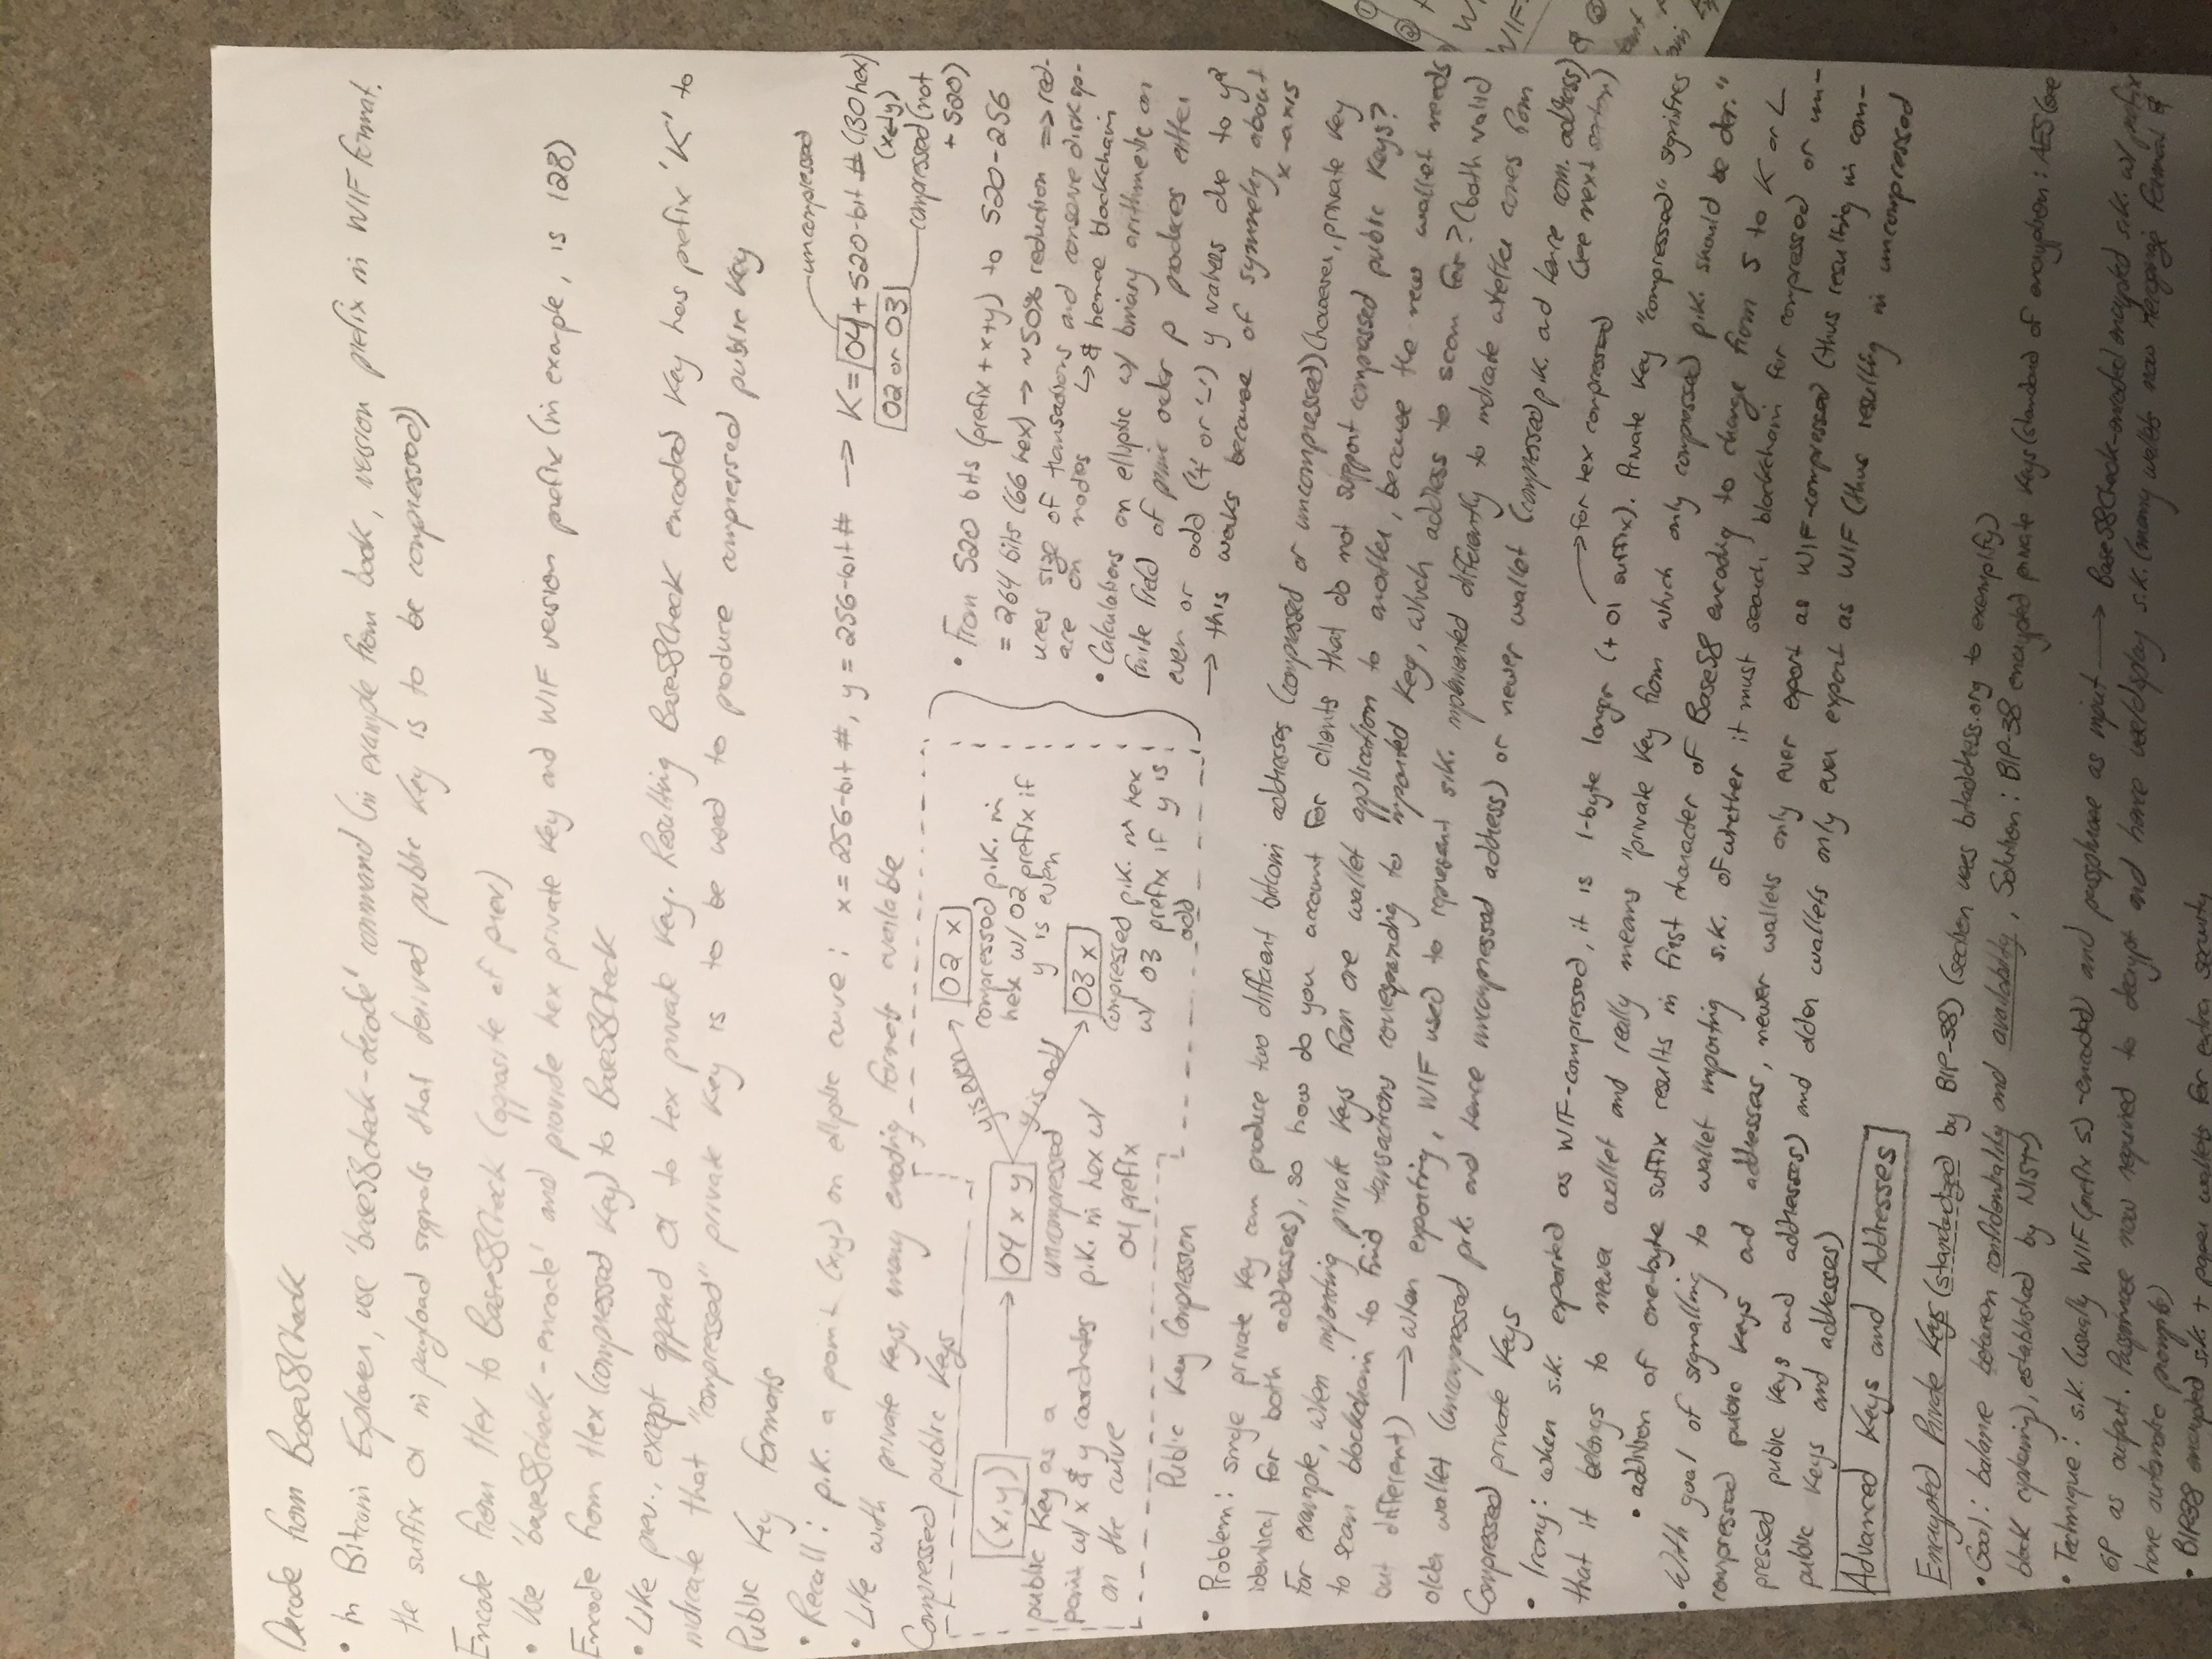 Decode from Base58Check
• In Bitcoin Explorer, use 'base58check-decode' command (in example from book, version prefix in WIF format.
the suffix 01 in payload signals that derived public key is to be compressed)
Encode from Hex to Base58Check (opposite of prev)
• Use 'base58check-encode' and provide hex private key and WIF version prefix (in example, is 128)
Encode from Hex (compressed key) to Base58Check
• Like prev., except append 01 to hex private key. Resulting Base58Check encoded key has prefix 'K' to
indicate that "compressed" private key is to be used to produce compressed public key
Public Key Formats
• Recall: p.k. a point (x,y) on elliptic curve: x = 256-bit #, y = 256-bit # → K = 04 + 520-bit # (130 hex)
uncompressed
(x & y)
02 or 03
compressed (not
+ 520)
• Like with private keys, many encoding formats available
Compressed public keys
(x,y)
public key as a
point w/ x & y coordinates
on the curve
04 x y
uncompressed
p.k. in hex w/
04 prefix
y is even
02 x
compressed p.k. in
hex w/ 02 prefix if
y is even
y is odd
03 x
compressed p.k. in hex
w/ 03 prefix if y is
odd
Public Key Compression
• From 520 bits (prefix + x + y) to 520-256
= 264 bits (66 hex) → ~50% reduction ⇒ red-
uces size of transactions and conserve disk sp-
ace on nodes ↳ & hence blockchain
• Calculations on elliptic w/ binary arithmetic on
finite field of prime order p produces either
even or odd ('+' or '-') y values due to y²
→ this works because of symmetry about
x-axis
• Problem: single private key can produce two different bitcoin addresses (compressed or uncompressed) (however, private key
identical for both addresses), so how do you account for clients that do not support compressed public keys?
For example, when importing private keys from one wallet application to another, because the new wallet needs
to scan blockchain to find transactions corresponding to imported key, which address to scan for? (both valid
but different) → when exporting, WIF used to represent s.k. implemented differently to indicate whether comes from
older wallet (uncompressed p.k. and hence uncompressed address) or newer wallet (compressed p.k. and hence com. address)
Compressed private keys
(see next section)
• Irony: when s.k. exported as WIF-compressed, it is 1-byte longer (+ 01 suffix). Private key "compressed" signifies
→ for hex compressed
that it belongs to newer wallet and really means "private key from which only compressed p.k. should be der."
• addition of one-byte suffix results in first character of Base58 encoding to change from 5 to K or L
• With goal of signalling to wallet importing s.k. of whether it must search blockchain for compressed or un-
compressed public keys and addresses, newer wallets only ever export as WIF-compressed (thus resulting in com-
pressed public keys and addresses) and older wallets only ever export as WIF (thus resulting in uncompressed
public keys and addresses)
Advanced Keys and Addresses
Encrypted Private Keys (standardized by BIP-38) (section uses bitaddress.org to exemplify)
• Goal: balance between confidentiality and availability, Solution: BIP-38 encrypted private keys (standard of encryption: AES (one
block ciphering), established by NIST)
• Technique: s.k. (usually WIF (prefix 5)-encoded) and passphrase as input → Base58Check-encoded encrypted s.k. w/ prefix
6P as output. Passphrase now required to decrypt and have wallet display s.k. (many wallets now recognize format &
have automatic prompts)
• BIP38 encrypted s.k. + paper wallets for extra security